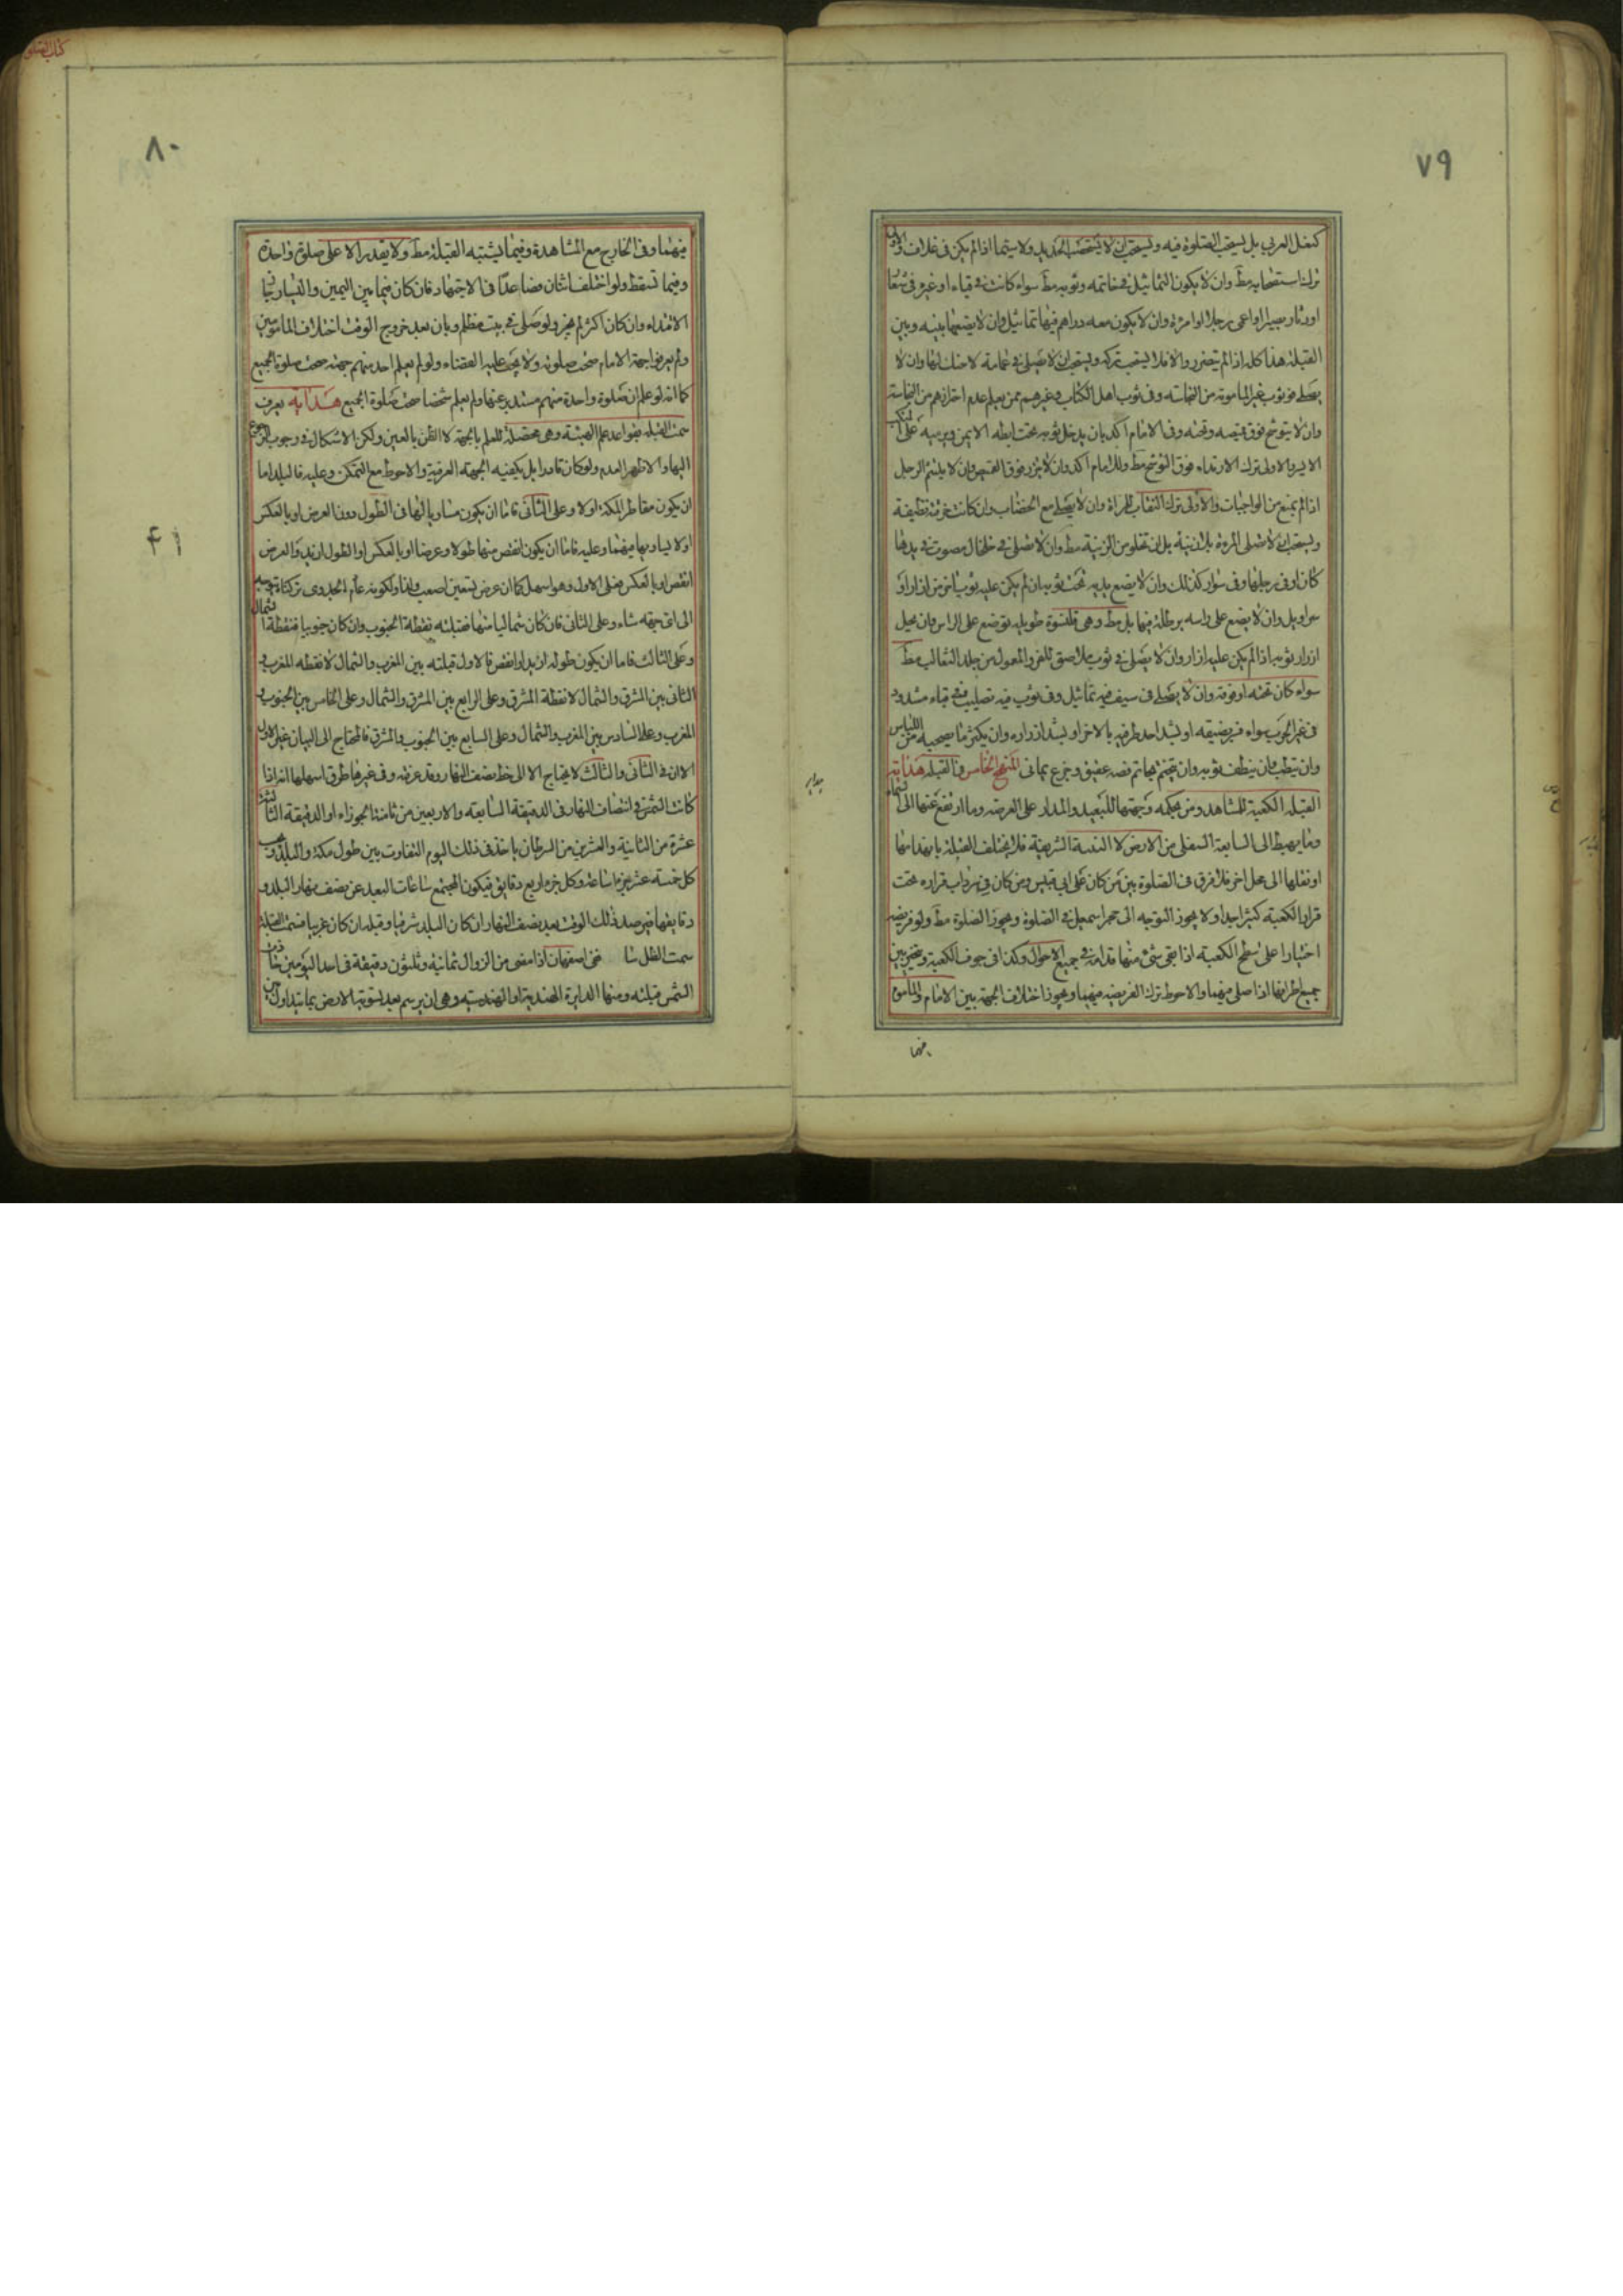 ٧٩
كنعل العربي بل يستحب الصلوة فيه ويستحب ان لا يستصحب الحديد ولا سيما اذا لم يكن في غلاف والاولى
ترك استصحابه مط وان لا يكون التماثيل في خاتمه وثوبه مط سواء كانت في قباء او غيره في شعار
او دثار بصيرا او اعمى رجلا او امرءة وان لا يكون معه دراهم فيها تماثيل وان لا يضعها بينه وبين
القبلة هذا كله اذا لم يتضرر والا فلا يستحب تركه ويستحب ان لا يصلى في عمامة لا حنك لها وان لا
يصلى في ثوب غير المامون من النجاسة وفي ثوب اهل الكتاب وغيرهم ممن يعلم عدم احترازهم من النجاسة
وان لا يتوشح فوق قميصه وتحته وفي الامام آكد بان يدخل ثوبه تحت ابطه الايمن ويرميه على منكبه
الايسر والاولى ترك الارتداء فوق التوشح مط وللامام آكد وان لا يتزر فوق القميص وان لا يلتثم الرجل
اذا لم يمنع من الواجبات والاولى ترك النقاب للمراة وان لا يصلى مع الخضاب وان كانت خرقته نظيفة
ويستحب ان لا تصلى المرءة بلا زينة بل ان تخلو من الزينة مط وان لا تصلى في خلخال مصوت في يدها
كان او في رجلها وفي سوار كذلك وان لا يضع يديه تحت ثوبه ان لم يكن عليه ثوب اخر من ازار او
سراويل وان لا يضع على راسه برطلة فيها بل مط وهي قلنسوة طويله توضع على الراس وان يحيل
ازرار ثوبه اذا لم يكن عليه ازار وان لا يصلى في ثوب ملاصق للفرو المعمول من جلد الثعالب مط
سواء كان تحته او فوقه وان لا يصلى في سيف فيه تماثيل وفي ثوب فيه تصليب وفي قباء مشدود
في غير الحرب سواء فسر بضيقه او بشد احد طرفيه بالاخر او بشد ازراره وان يكثر ما يصحبه من اللباس
وان يتطيب وان ينظف ثوبه وان يتختم بخاتم فصه عقيق وجزع يماني المنهج الخامس في القبلة هداية
القبلة الكعبة للمشاهد ومن بحكمه وجهتها للبعيد والمدار على العرصة وما ارتفع عنها الى السماء
وما يهبط الى السابعة السفلى من الارض لا البنية الشريفة فلا يختلف القبلة بانهدامها
او نقلها الى محل اخر فلا فرق في الصلوة بين من كان على ابي قبيس ومن كان في سرداب قراره تحت
قرار الكعبة كثيرا جدا ولا يجوز التوجه الى حجر اسمعيل في الصلوة ويجوز الصلوة مط ولو فريضة
اختيارا على سطح الكعبة اذا بقى شئ منها قدامه في جميع الاحوال وكذا في جوف الكعبة ويتخير بين
جميع اطرافها اذا صلى فيها والاحوط ترك الفريضة فيهما ويجوز اختلاف الجهة بين الامام والماموم
فيهما
كتاب الصلوة
٨٠
٤١
فيهما وفي الخارج مع المشاهدة وفيما يشتبه القبلة مط ولا يقدر الا على صلوة واحدة
وفيما تسقط ولو اختلف اثنان فصاعدا في الاجتهاد فان كان فيما بين اليمين واليسار جاز
الاقتداء وان كان اكثر لم يجز ولو صلى في بيت مظلم وبان بعد خروج الوقت اختلاف المامومين
ولم يعرفوا جهة الامام صحت صلوته ولا يجب عليه القضاء ولو لم يعلم احد منهم جهته صحت صلوة الجميع
كما انه لو علم ان صلوة واحدة منهم مستدبر عنها ولم يعلم شخصا صحت صلوة الجميع هداية يعرف
سمت القبلة بقواعد علم الهيئة وهي محصلة للعلم بالجهة لا الظن بالعين ولكن الاشكال في وجوب الرجوع
اليها والاظهر العدم ولو كان قادرا بل يكفيه الجهة العرفية والاحوط مع التمكن وعليه فالبلد اما
ان يكون مقاطر المكة او لا وعلى الثاني فاما ان يكون مساويا لها في الطول دون العرض او بالعكس
او لا يساويها فيهما وعليه فاما ان يكون انقص منها طولا وعرضا او بالعكس او الطول ازيد والعرض
انقص او بالعكس فعلى الاول وهو اسهل كما ان عرض تسعين اصعب ولذا ولكونه عام الجدوى تركناه توجه
الى اى جهة شاء وعلى الثاني فان كان شماليا منها فقبلته نقطة الجنوب وان كان جنوبيا فنقطة الشمال
وعلى الثالث فاما ان يكون طوله ازيد او انقص فالاول قبلته بين المغرب والشمال لا نقطة المغرب و
الثاني بين المشرق والشمال لا نقطة المشرق وعلى الرابع بين المشرق والشمال وعلى الخامس بين الجنوب و
المغرب وعلى السادس بين المغرب والشمال وعلى السابع بين الجنوب والمشرق فالمحتاج الى البيان غير الاول
الان في الثاني والثالث لا يحتاج الا الى خط نصف النهار وقد عرفته وفي غيرها طرق اسهلها انه اذا
كانت الشمس في انتصاف النهار في الدقيقة السابعة والاربعين من ثامنة الجوزاء او الدقيقة الثالثة
عشرة من الثانية والعشرين من السرطان ياخذ في ذلك اليوم التفاوت بين طول مكة والبلد
كل خمسة عشر جزءا ساعة وكل جزء اربع دقايق فيكون المجتمع ساعات البعد عن نصف نهار البلد و
دقايقها فيرصد ذلك الوقت بعد نصف النهار ان كان البلد شرقيا وقبله ان كان غربيا فسمت القبلة
سمت الظل ففي اصفهان اذا مضى من الزوال ثمانية وثلثون دقيقة في احد اليومين
الشمس قبلته ومنها الدايرة الهندية او الهندسية وهي ان يرسم بعد تسوية الارض بما يتداول